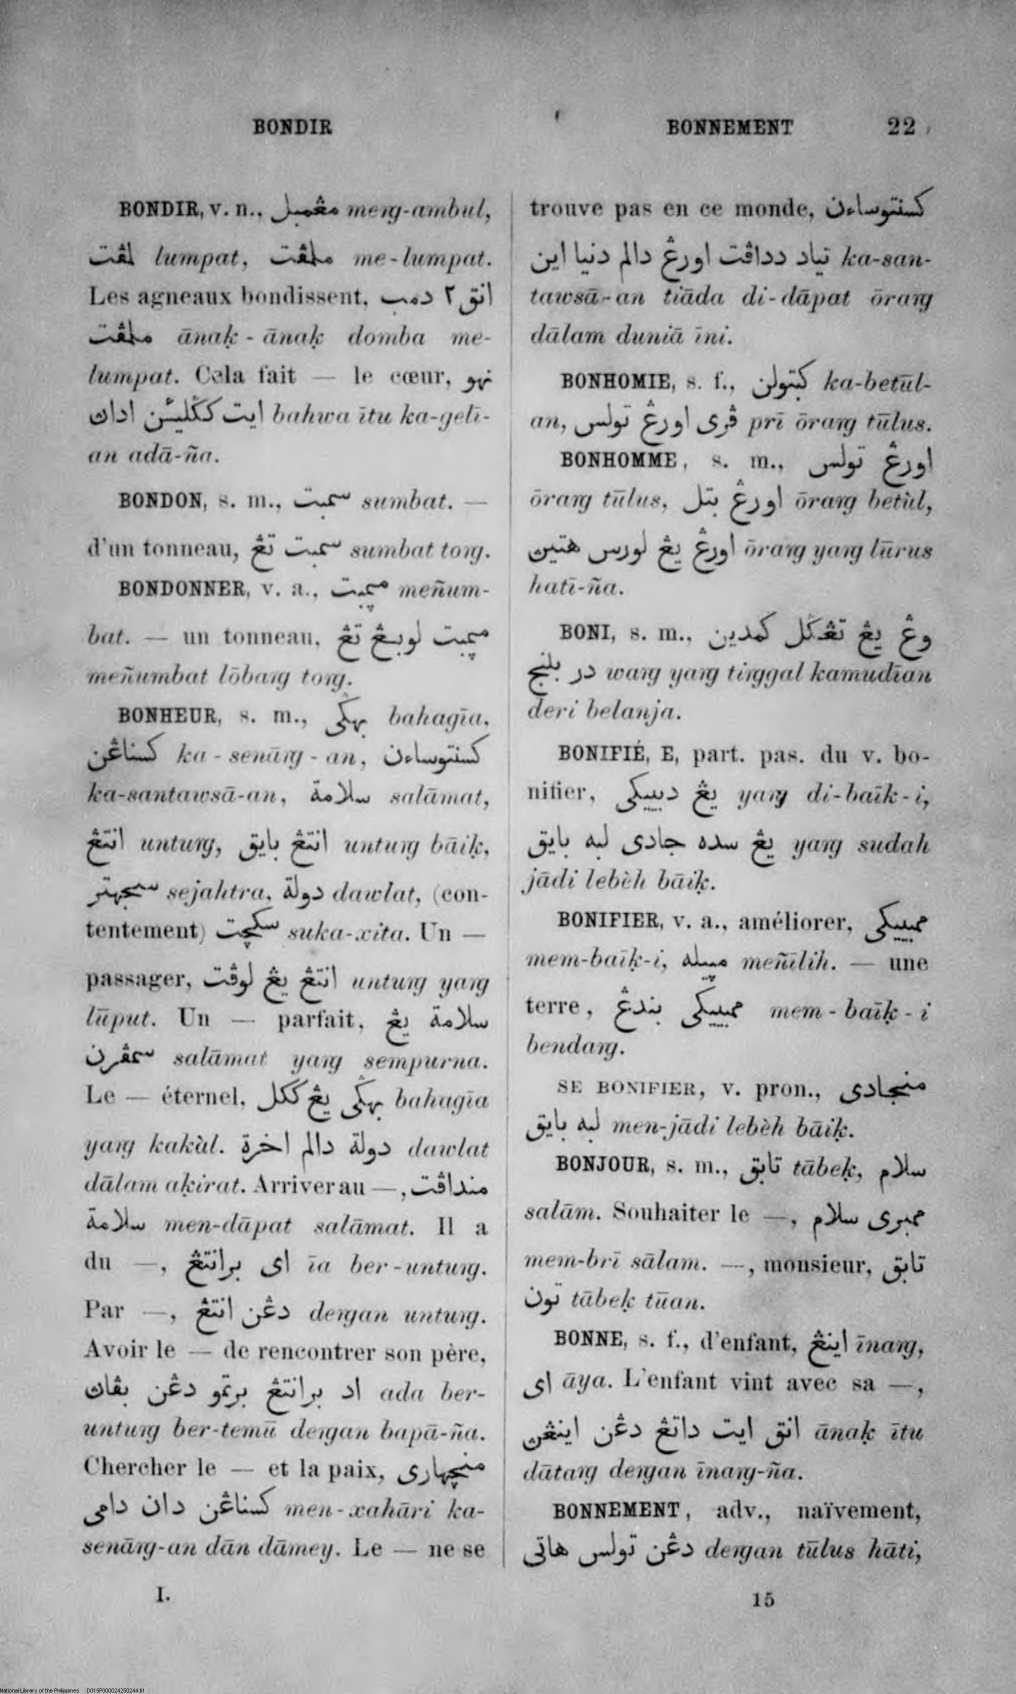 BONDIR
BONNEMENT 22
BONDIR, v. n., مڠمبل meng-ambul,
لڤت lumpat, ملڤت me-lumpat.
Les agneaux bondissent, انق٢ دمب
ملڤت ānaḳ-ānaḳ domba me-
lumpat. Cela fait — le cœur, نهو
ايت کڬليئن ادان bahwa ītu ka-gelī-
an adā-ña.
BONDON, s. m., سمبت sumbat. —
d'un tonneau, سمبت تڠ sumbat tong.
BONDONNER, v. a., ميمبت meñum-
bat. — un tonneau, ميمبت لوبڠ تڠ
meñumbat lōbang tong.
BONHEUR, s. m., بهکی bahagīa,
کسناڠن ka-senāng-an, کسنتوساءن
ka-santawsā-an, سلامة salāmat,
انتڠ untung, انتڠ بايق untung bāiḳ,
سجهتر sejahtra, دولة dawlat, (con-
tentement) سکچت suka-xita. Un —
passager, انتڠ يڠ لوڤت untung yang
lūput. Un — parfait, سلامة يڠ
سمڤرن salāmat yang sempurna.
Le — éternel, بهکی يڠ ککل bahagīa
yang kakàl. دولة دالم اخرة dawlat
dālam aḳirat. Arriver au —, منداڤت
سلامة men-dāpat salāmat. Il a
du —, ای برانتڠ īa ber-untung.
Par —, دڠن انتڠ dengan untung.
Avoir le — de rencontrer son père,
اد برانتڠ برتمو دڠن بڤان ada ber-
untung ber-temū dengan bapā-ña.
Chercher le — et la paix, منچهاری
کسناڠن دان دامی men-xahāri ka-
senāng-an dān dāmey. Le — ne se
I.
trouve pas en ce monde, کسنتوساءن
تياد دداڤت اورڠ دالم دنيا اين ka-san-
tawsā-an tiāda di-dāpat ōrang
dālam duniā īni.
BONHOMIE, s. f., کبتولن ka-betūl-
an, ڤری اورڠ تولس prī ōrang tūlus.
BONHOMME, s. m., اورڠ تولس
ōrang tūlus, اورڠ بتل ōrang betùl,
اورڠ يڠ لورس هتين ōrang yang lūrus
hatī-ña.
BONI, s. m., وڠ يڠ تڠکل کمدين
در بلنج wang yang tinggal kamudīan
deri belanja.
BONIFIÉ, E, part. pas. du v. bo-
nifier, يڠ دبيکی yang di-baīk-i,
يڠ سده جادی لبه بايق yang sudah
jādi lebèh bāiḳ.
BONIFIER, v. a., améliorer, ممبيکی
mem-baīḳ-i, ميله meñīlih. — une
terre, ممبيکی بندڠ mem-baīḳ-i
bendang.
SE BONIFIER, v. pron., منجادی
لبه بايق men-jādi lebèh bāiḳ.
BONJOUR, s. m., تابق tābeḳ, سلام
salām. Souhaiter le —, ممبری سلام
mem-brī sālam. —, monsieur, تابق
تون tābeḳ tūan.
BONNE, s. f., d'enfant, اينڠ īnang,
ای āya. L'enfant vint avec sa —,
انق ايت داتڠ دڠن اينڠن ānaḳ ītu
dātang dengan īnang-ña.
BONNEMENT, adv., naïvement,
دڠن تولس هاتی dengan tūlus hāti,
15
National Library of the Philippines